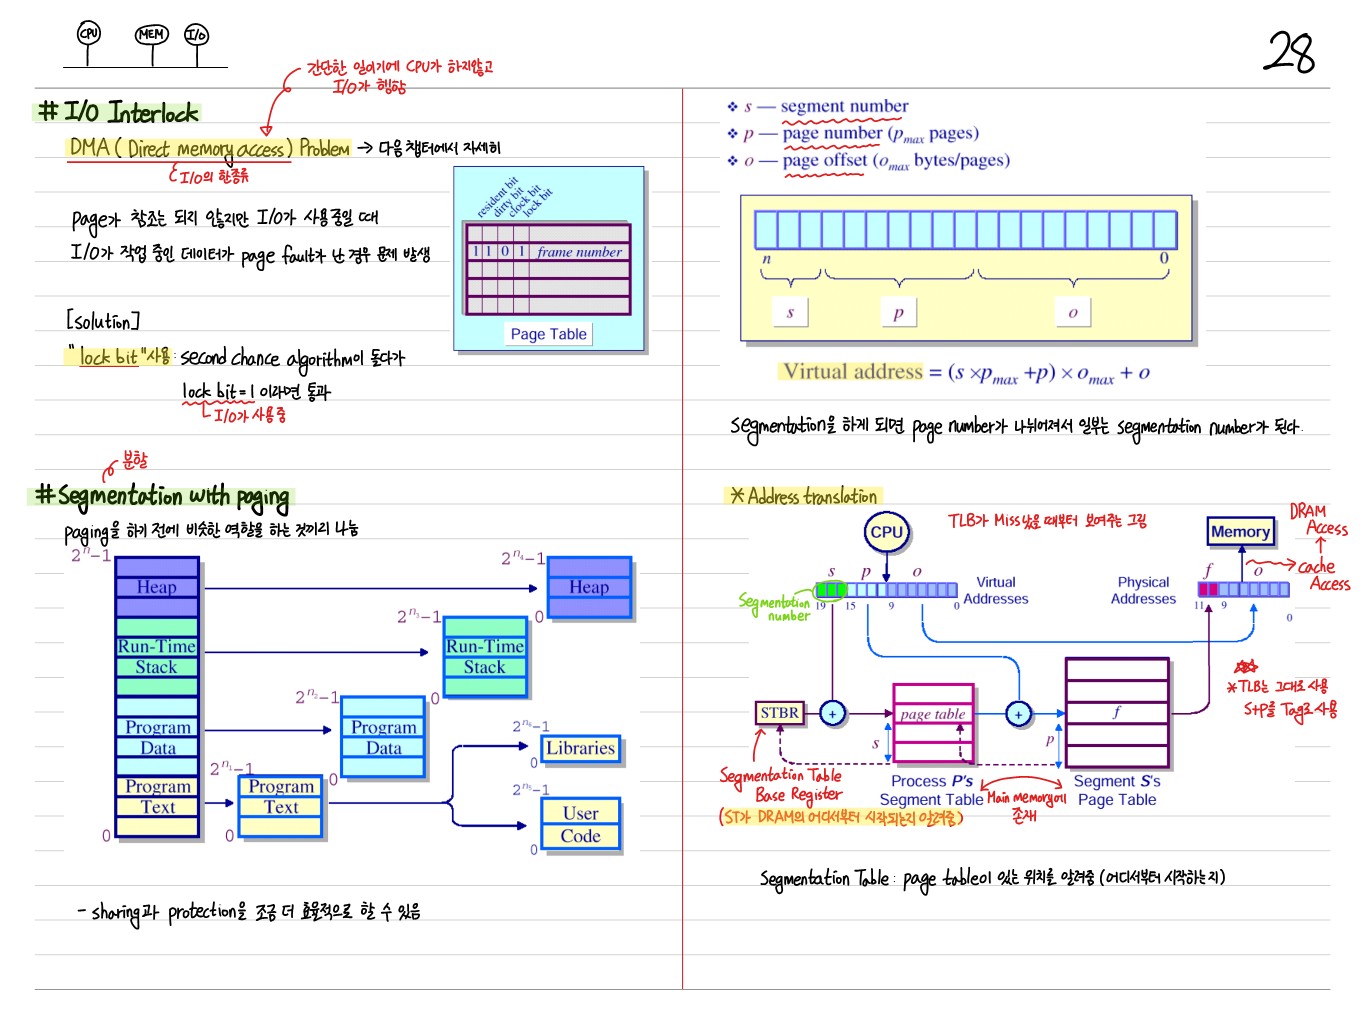 CPU MEM I/O
28
간단한 일이기에 CPU가 하지않고
I/O가 행함
# I/O Interlock
DMA ( Direct memory access ) Problem → 다음 챕터에서 자세히
I/O의 한종류
page가 참조는 되지 않지만 I/O가 사용중일 때
I/O가 작업 중인 데이터가 page fault가 난 경우 문제 발생
resident bit
dirty bit
clock bit
lock bit
1 1 0 1 frame number
Page Table
[solution]
"lock bit" 사용 : second chance algorithm이 돌다가
lock bit = 1 이라면 통과
I/O가 사용중
분할
# Segmentation with paging
paging을 하기 전에 비슷한 역할을 하는 것끼리 나눔
2^n-1
Heap
Run-Time
Stack
Program
Data
Program
Text
0
2^n₄-1
Heap
0
2^n₃-1
Run-Time
Stack
0
2^n₂-1
Program
Data
0
2^n₁-1
Program
Text
0
2^n₆-1
Libraries
0
2^n₅-1
User
Code
0
- sharing과 protection을 조금 더 효율적으로 할 수 있음
❖ s — segment number
❖ p — page number (p_max pages)
❖ o — page offset (o_max bytes/pages)
n 0
s p o
Virtual address = (s ×p_max +p) × o_max + o
segmentation을 하게 되면 page number가 나뉘어져서 일부는 segmentation number가 된다.
* Address translation
TLB가 Miss났을 때부터 보여주는 그림
CPU
Memory
DRAM
Access
cache
Access
s p o
Virtual
Addresses
19 15 9 0
Segmentation
number
Physical
Addresses
f o
11 9 0
*TLB는 그대로 사용
S+P를 Tag로 사용
STBR
+
page table
s
+
f
p
Process P's
Segment Table
Segment S's
Page Table
Main memory에
존재
Segmentation Table
Base Register
(ST가 DRAM의 어디서부터 시작되는지 알려줌)
Segmentation Table : page table이 있는 위치를 알려줌 (어디서부터 시작하는지)